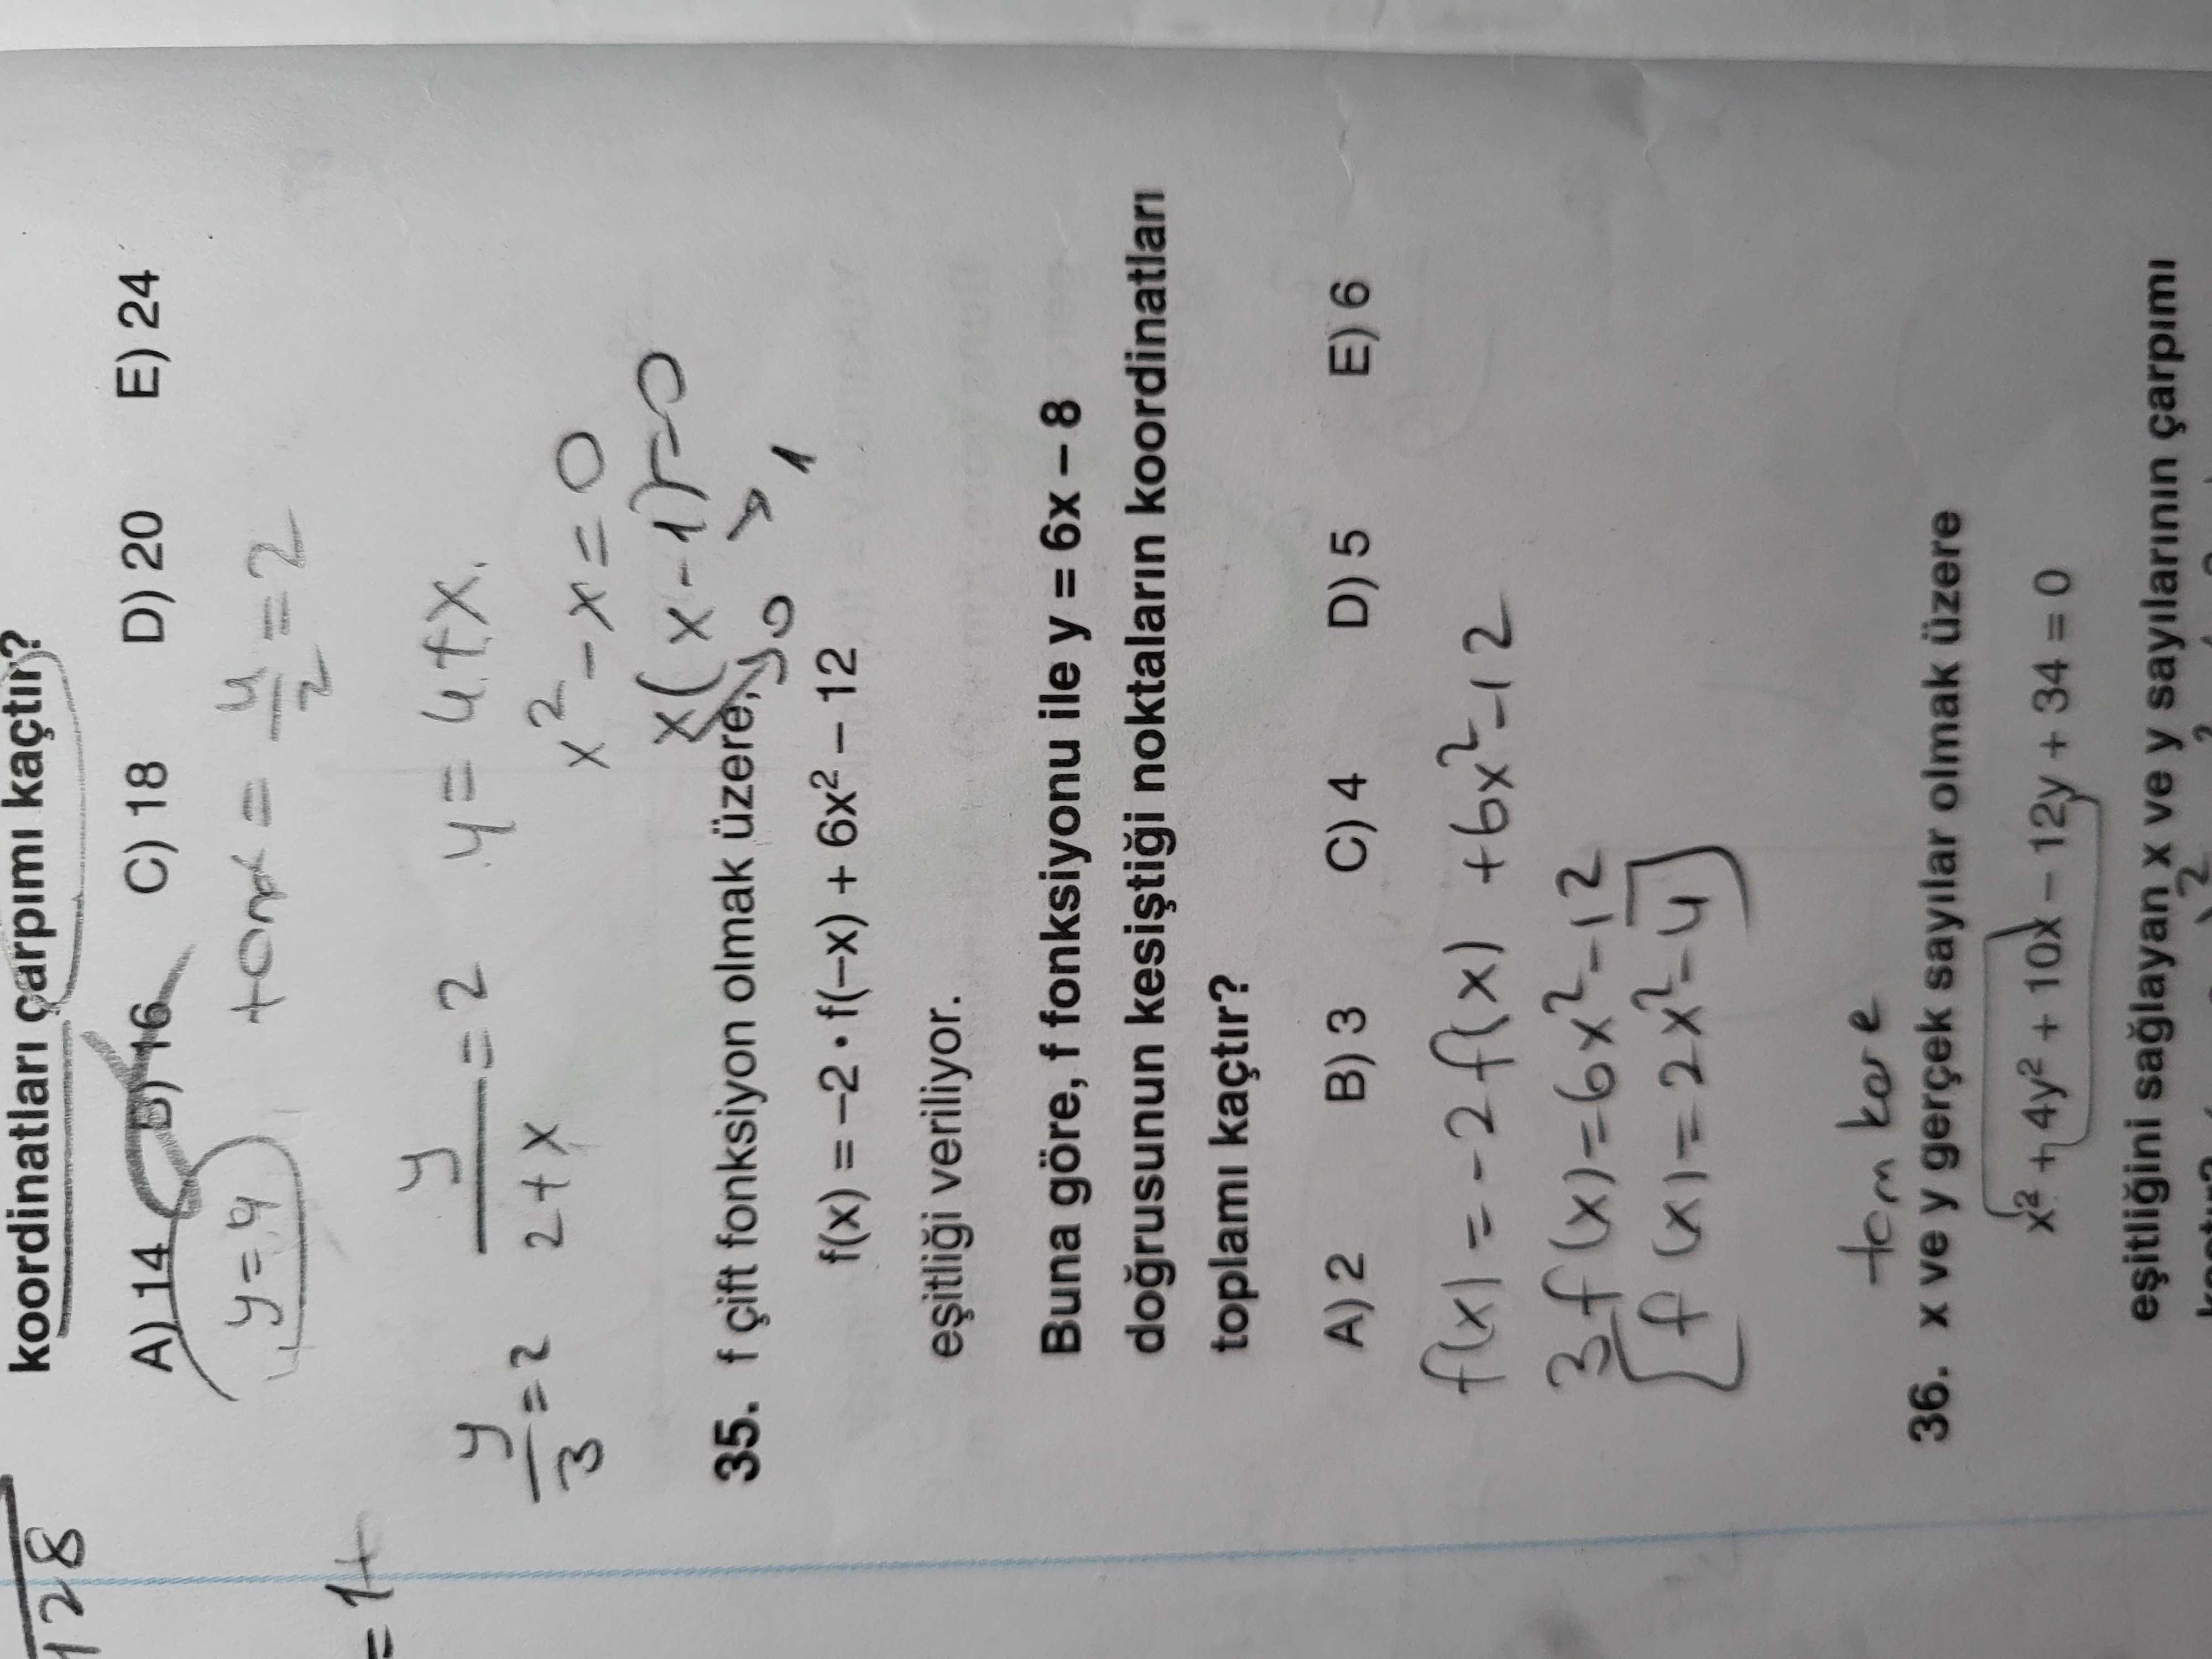 128
= 1+
koordinatları çarpımı kaçtır?
A) 14 B) 16 C) 18 D) 20 E) 24
y = 4
tanx = 4/2 = 2
y/3 = 2
y/2+x = 2
y = 4+x.
x² - x = 0
x(x-1) = 0
0 1
35. f çift fonksiyon olmak üzere,
f(x) = –2 • f(–x) + 6x² – 12
eşitliği veriliyor.
Buna göre, f fonksiyonu ile y = 6x – 8
doğrusunun kesiştiği noktaların koordinatları
toplamı kaçtır?
A) 2 B) 3 C) 4 D) 5 E) 6
f(x) = -2 f(x) + 6x² - 12
3 f(x) = 6x² - 12
f(x) = 2x² - 4
tam kare
36. x ve y gerçek sayılar olmak üzere
x² + 4y² + 10x – 12y + 34 = 0
eşitliğini sağlayan x ve y sayılarının çarpımı